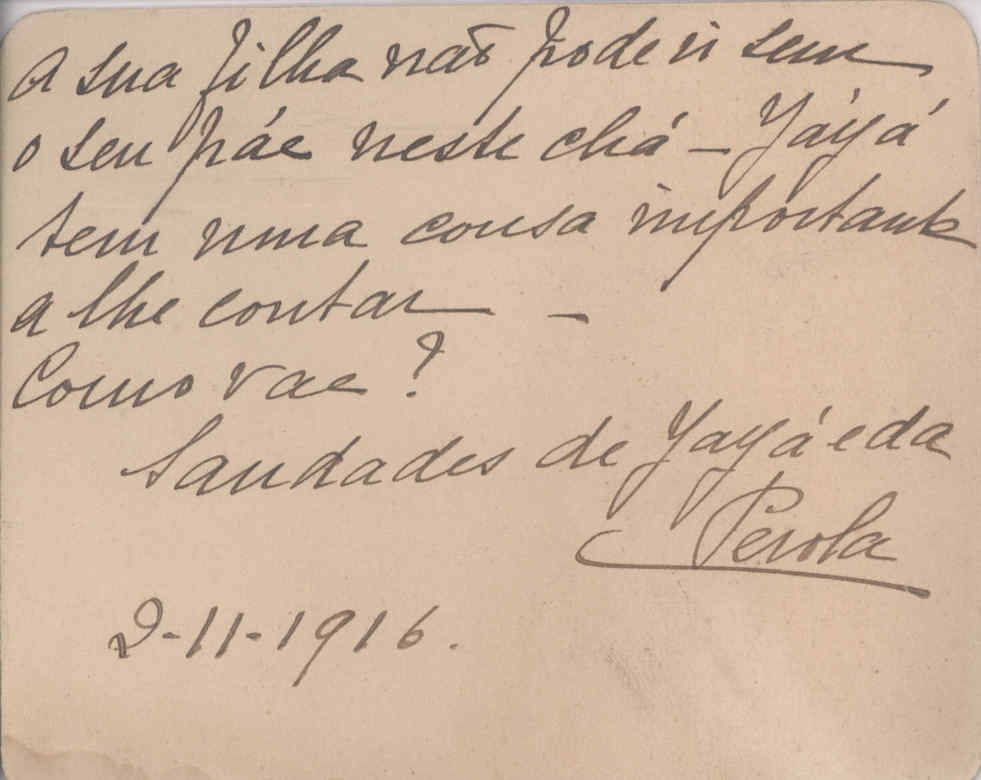 A sua filha não pode ir sem
o seu páe neste chá – Yáyá
tem uma cousa importante
a lhe contar –
Como vae?
Saudades de Yayá e da
Perola
2-11-1916.